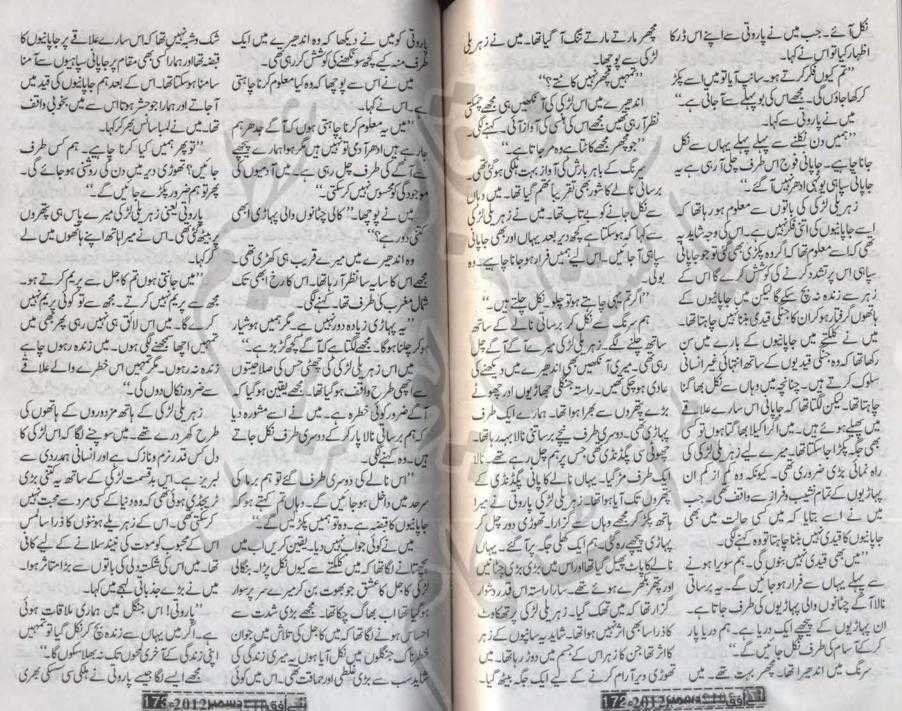 نکل آئے۔ جب میں نے پاروتی سے اپنے اس ڈر کا
اظہار کیا تو اس نے کہا۔
”تم کیوں فکر کرتے ہو۔ سانپ آیا تو میں اسے پکڑ
کر کھا جاؤں گی۔ مجھے اس کی بو پہلے سے آجاتی ہے۔“
میں نے پاروتی سے کہا۔
”ہمیں دن نکلنے سے پہلے پہلے یہاں سے نکل
جانا چاہیے۔ جاپانی فوج اس طرف چلی آرہی ہے یہ
جاپانی سپاہی یونہی ادھر نہیں آگئے۔“
زہریلی لڑکی کی باتوں سے معلوم ہو رہا تھا کہ
اسے جاپانیوں کی اتنی فکر نہیں ہے۔ اس کی وجہ شاید یہ
تھی کہ اسے معلوم تھا کہ اگر وہ پکڑی بھی گئی تو جو جاپانی
سپاہی اس پر تشدد کرنے کی کوشش کرے گا اس کے
زہر سے زندہ نہ بچ سکے گا لیکن میں جاپانیوں کے
ہاتھوں گرفتار ہو کر ان کا جنگی قیدی بننا نہیں چاہتا تھا۔
میں نے کلکتے میں جاپانیوں کے بارے میں سن
رکھا تھا کہ وہ جنگی قیدیوں کے ساتھ انتہائی غیر انسانی
سلوک کرتے ہیں۔ چنانچہ میں وہاں سے نکل بھاگنا
چاہتا تھا۔ لیکن لگتا تھا کہ جاپانی اس سارے علاقے
میں پھیلے ہوئے ہیں۔ میں اگر اکیلا بھاگتا ہوں تو کسی
بھی جگہ پکڑا جا سکتا تھا۔ میرے لیے زہریلی لڑکی کی
راہ نمائی بڑی ضروری تھی۔ کیونکہ وہ کم از کم ان
پہاڑیوں کے تمام نشیب و فراز سے واقف تھی۔ جب
میں نے اسے بتایا کہ میں کسی حالت میں بھی
جاپانیوں کا قیدی نہیں بننا چاہتا تو وہ کہنے لگی۔
”میں بھی قیدی نہیں بنوں گی۔ ہم سویرا ہونے
سے پہلے یہاں سے فرار ہو جائیں گے۔ یہ برساتی
نالا آگے چٹانوں والی پہاڑیوں کی طرف جاتا ہے۔
ان پہاڑیوں کے پیچھے ایک دریا ہے۔ ہم دریا پار
کر کے آسام کی طرف نکل جائیں گے۔“
سرنگ میں اندھیرا تھا۔ مچھر بہت تھے۔ میں
مچھر مارتے مارتے تنگ آ گیا تھا۔ میں نے زہریلی
لڑکی سے پوچھا۔
”تمہیں مچھر نہیں کاٹتے؟“
اندھیرے میں اس لڑکی کی آنکھیں ہی مجھے چمکتی
نظر آ رہی تھیں مجھے اس کی ہنسی کی آواز آئی۔ کہنے لگی۔
”جو مچھر مجھے کاٹتا ہے وہ مر جاتا ہے۔“
سرنگ کے باہر بارش کی آواز بہت ہلکی ہو گئی تھی۔
برساتی نالے کا شور بھی تقریباً تھم گیا تھا۔ میں وہاں
سے نکل جانے کو بے تاب تھا۔ میں نے زہریلی لڑکی
سے کہا کہ ہو سکتا ہے کچھ دیر بعد یہاں اور بھی جاپانی
سپاہی آجائیں۔ اس لیے ہمیں فرار ہو جانا چاہیے۔ وہ
بولی۔
”اگر تم یہی چاہتے ہو تو چلو نکل چلتے ہیں۔“
ہم سرنگ سے نکل کر برساتی نالے کے ساتھ
ساتھ چلنے لگے۔ زہریلی لڑکی میرے آگے آگے چل
رہی تھی۔ میری آنکھیں بھی اندھیرے میں دیکھنے کی
عادی ہو چکی تھیں۔ راستہ جنگلی جھاڑیوں اور چھوٹے
بڑے پتھروں سے بھرا ہوا تھا۔ ہمارے ایک طرف
پہاڑی تھی۔ دوسری طرف نیچے برساتی نالا بہہ رہا تھا۔
چھوٹی سی پگڈنڈی تھی جس پر ہم چل رہے تھے۔ نالا
ایک طرف مڑ گیا۔ یہاں نالے کا پانی پگڈنڈی کے
پتھروں تک آیا ہوا تھا۔ زہریلی لڑکی پاروتی نے میرا
ہاتھ پکڑ کر مجھے وہاں سے گزارا۔ تھوڑی دور چل کر
پہاڑی پیچھے رہ گئی۔ ہم ایک کھلی جگہ پر آ گئے۔ یہاں
نالے کا پاٹ پھیل گیا تھا اور اس میں بڑی بڑی چٹانیں
اور پتھر بکھرے ہوئے تھے۔ سارا راستہ اس قدر دشوار
گزار تھا کہ میں تھک گیا۔ زہریلی لڑکی پر تھکاوٹ
کا ذرا سا بھی اثر نہیں ہوا تھا۔ شاید یہ سانپوں کے زہر
کا اثر تھا جن کا زہر اس کے جسم میں دوڑ رہا تھا۔ میں
تھوڑی دیر آرام کرنے کے لیے ایک جگہ بیٹھ گیا۔
172 2012
پاروتی کو میں نے دیکھا کہ وہ اندھیرے میں ایک
طرف منہ کیے کچھ سونگھنے کی کوشش کر رہی تھی۔
میں نے اس سے پوچھا کہ وہ کیا معلوم کرنا چاہتی
ہے۔ اس نے کہا۔
”میں یہ معلوم کرنا چاہتی ہوں کہ آگے جدھر ہم
جا رہے ہیں ادھر آدمی تو نہیں ہیں مگر ہوا ہمارے پیچھے
سے آگے کی طرف چل رہی ہے۔ میں آدمیوں کی
موجودگی کو محسوس نہیں کر سکتی۔“
میں نے پوچھا۔ ”کالی چٹانوں والی پہاڑی ابھی
کتنی دور ہے؟“
وہ اندھیرے میں میرے قریب ہی کھڑی تھی۔
مجھے اس کا سایہ سا نظر آ رہا تھا۔ اس کا رخ ابھی تک
شمال مغرب کی طرف تھا۔ کہنے لگی۔
”یہ پہاڑی زیادہ دور نہیں ہے۔ مگر ہمیں ہوشیار
ہو کر چلنا ہوگا۔ مجھے لگتا ہے کہ آگے کچھ گڑبڑ ہے۔“
میں اس زہریلی لڑکی کی چھٹی حس کی صلاحیتوں
سے اچھی طرح واقف ہو گیا تھا۔ مجھے یقین ہو گیا کہ
آگے ضرور کوئی خطرہ ہے۔ میں نے اسے مشورہ دیا
کہ ہم برساتی نالا پار کر کے دوسری طرف نکل جاتے
ہیں۔ وہ کہنے لگی۔
”اس نالے کی دوسری طرف گئے تو ہم برما کی
سرحد میں داخل ہو جائیں گے۔ وہاں تم کہتے ہو کہ
جاپانیوں کا قبضہ ہے۔ وہ تو ہمیں پکڑ لیں گے۔“
میں نے کوئی جواب نہیں دیا۔ یقین کریں اب میں
پچھتانے لگا تھا کہ میں کلکتے سے کیوں نکل پڑا۔ بنگالی
لڑکی کاجل کا عشق جو بھوت بن کر میرے سر پر سوار
ہو گیا تھا اب بھاگ چکا تھا۔ مجھے بڑی شدت سے
احساس ہونے لگا تھا کہ میں کاجل کی تلاش میں جو ان
خطرناک جنگلوں میں نکل آیا ہوں یہ میری زندگی کی
شاید سب سے بڑی غلطی اور حماقت تھی۔ اس میں کوئی
شک و شبہ نہیں تھا کہ اس سارے علاقے پر جاپانیوں کا
قبضہ تھا اور ہمارا کسی بھی مقام پر جاپانی سپاہیوں سے آمنا
سامنا ہو سکتا تھا۔ اس کے بعد ہم جاپانیوں کی قید میں
آجاتے اور ہمارا جو حشر ہوتا اس سے میں بخوبی واقف
تھا۔ میں نے لمبا سانس بھر کر کہا۔
”تو پھر ہمیں کیا کرنا چاہیے۔ ہم کس طرف
جائیں؟ تھوڑی دیر میں دن کی روشنی ہو جائے گی۔
پھر تو ہم ضرور پکڑے جائیں گے۔“
پاروتی یعنی زہریلی لڑکی میرے پاس ہی پتھروں
پر بیٹھ گئی تھی۔ اس نے میرا ہاتھ اپنے ہاتھوں میں لے
کر کہا۔
”میں جانتی ہوں تم کاجل سے پریم کرتے ہو۔
مجھ سے پریم نہیں کرتے۔ مجھ سے تو کوئی پریم نہیں
کرے گا۔ میں اس لائق ہی نہیں رہی پھر بھی میں
تمہیں اچھا سمجھنے لگی ہوں۔ میں زندہ رہوں چاہے
زندہ نہ رہوں۔ مگر تمہیں اس خطرے والے علاقے
سے ضرور نکال دوں گی۔“
زہریلی لڑکی کے ہاتھ مزدوروں کے ہاتھوں کی
طرح کھردرے تھے۔ میں سوچنے لگا کہ اس لڑکی کا
دل کس قدر نرم و نازک ہے اور انسانی ہمدردی سے
لبریز ہے۔ اس بدقسمت لڑکی کے ساتھ یہ کتنی بڑی
ٹریجڈی ہوئی تھی کہ وہ دنیا کے کسی مرد سے محبت نہیں
کر سکتی تھی۔ اس کے زہریلے ہونٹوں کا ذرا سا لمس
اس کے محبوب کو موت کی نیند سلانے کے لیے کافی
تھا۔ میں اس کی شکستہ دلی کی باتوں سے بڑا متاثر ہوا۔
میں نے بڑے جذباتی لہجے میں کہا۔
”پاروتی! اس جنگل میں ہماری ملاقات ہوئی
ہے۔ اگر میں یہاں سے زندہ بچ کر نکل گیا تو تمہیں
اپنی زندگی کے آخری لمحوں تک نہ بھلا سکوں گا۔“
مجھے ایسے لگا جیسے پاروتی نے ہلکی سی سسکی بھری
173 2012